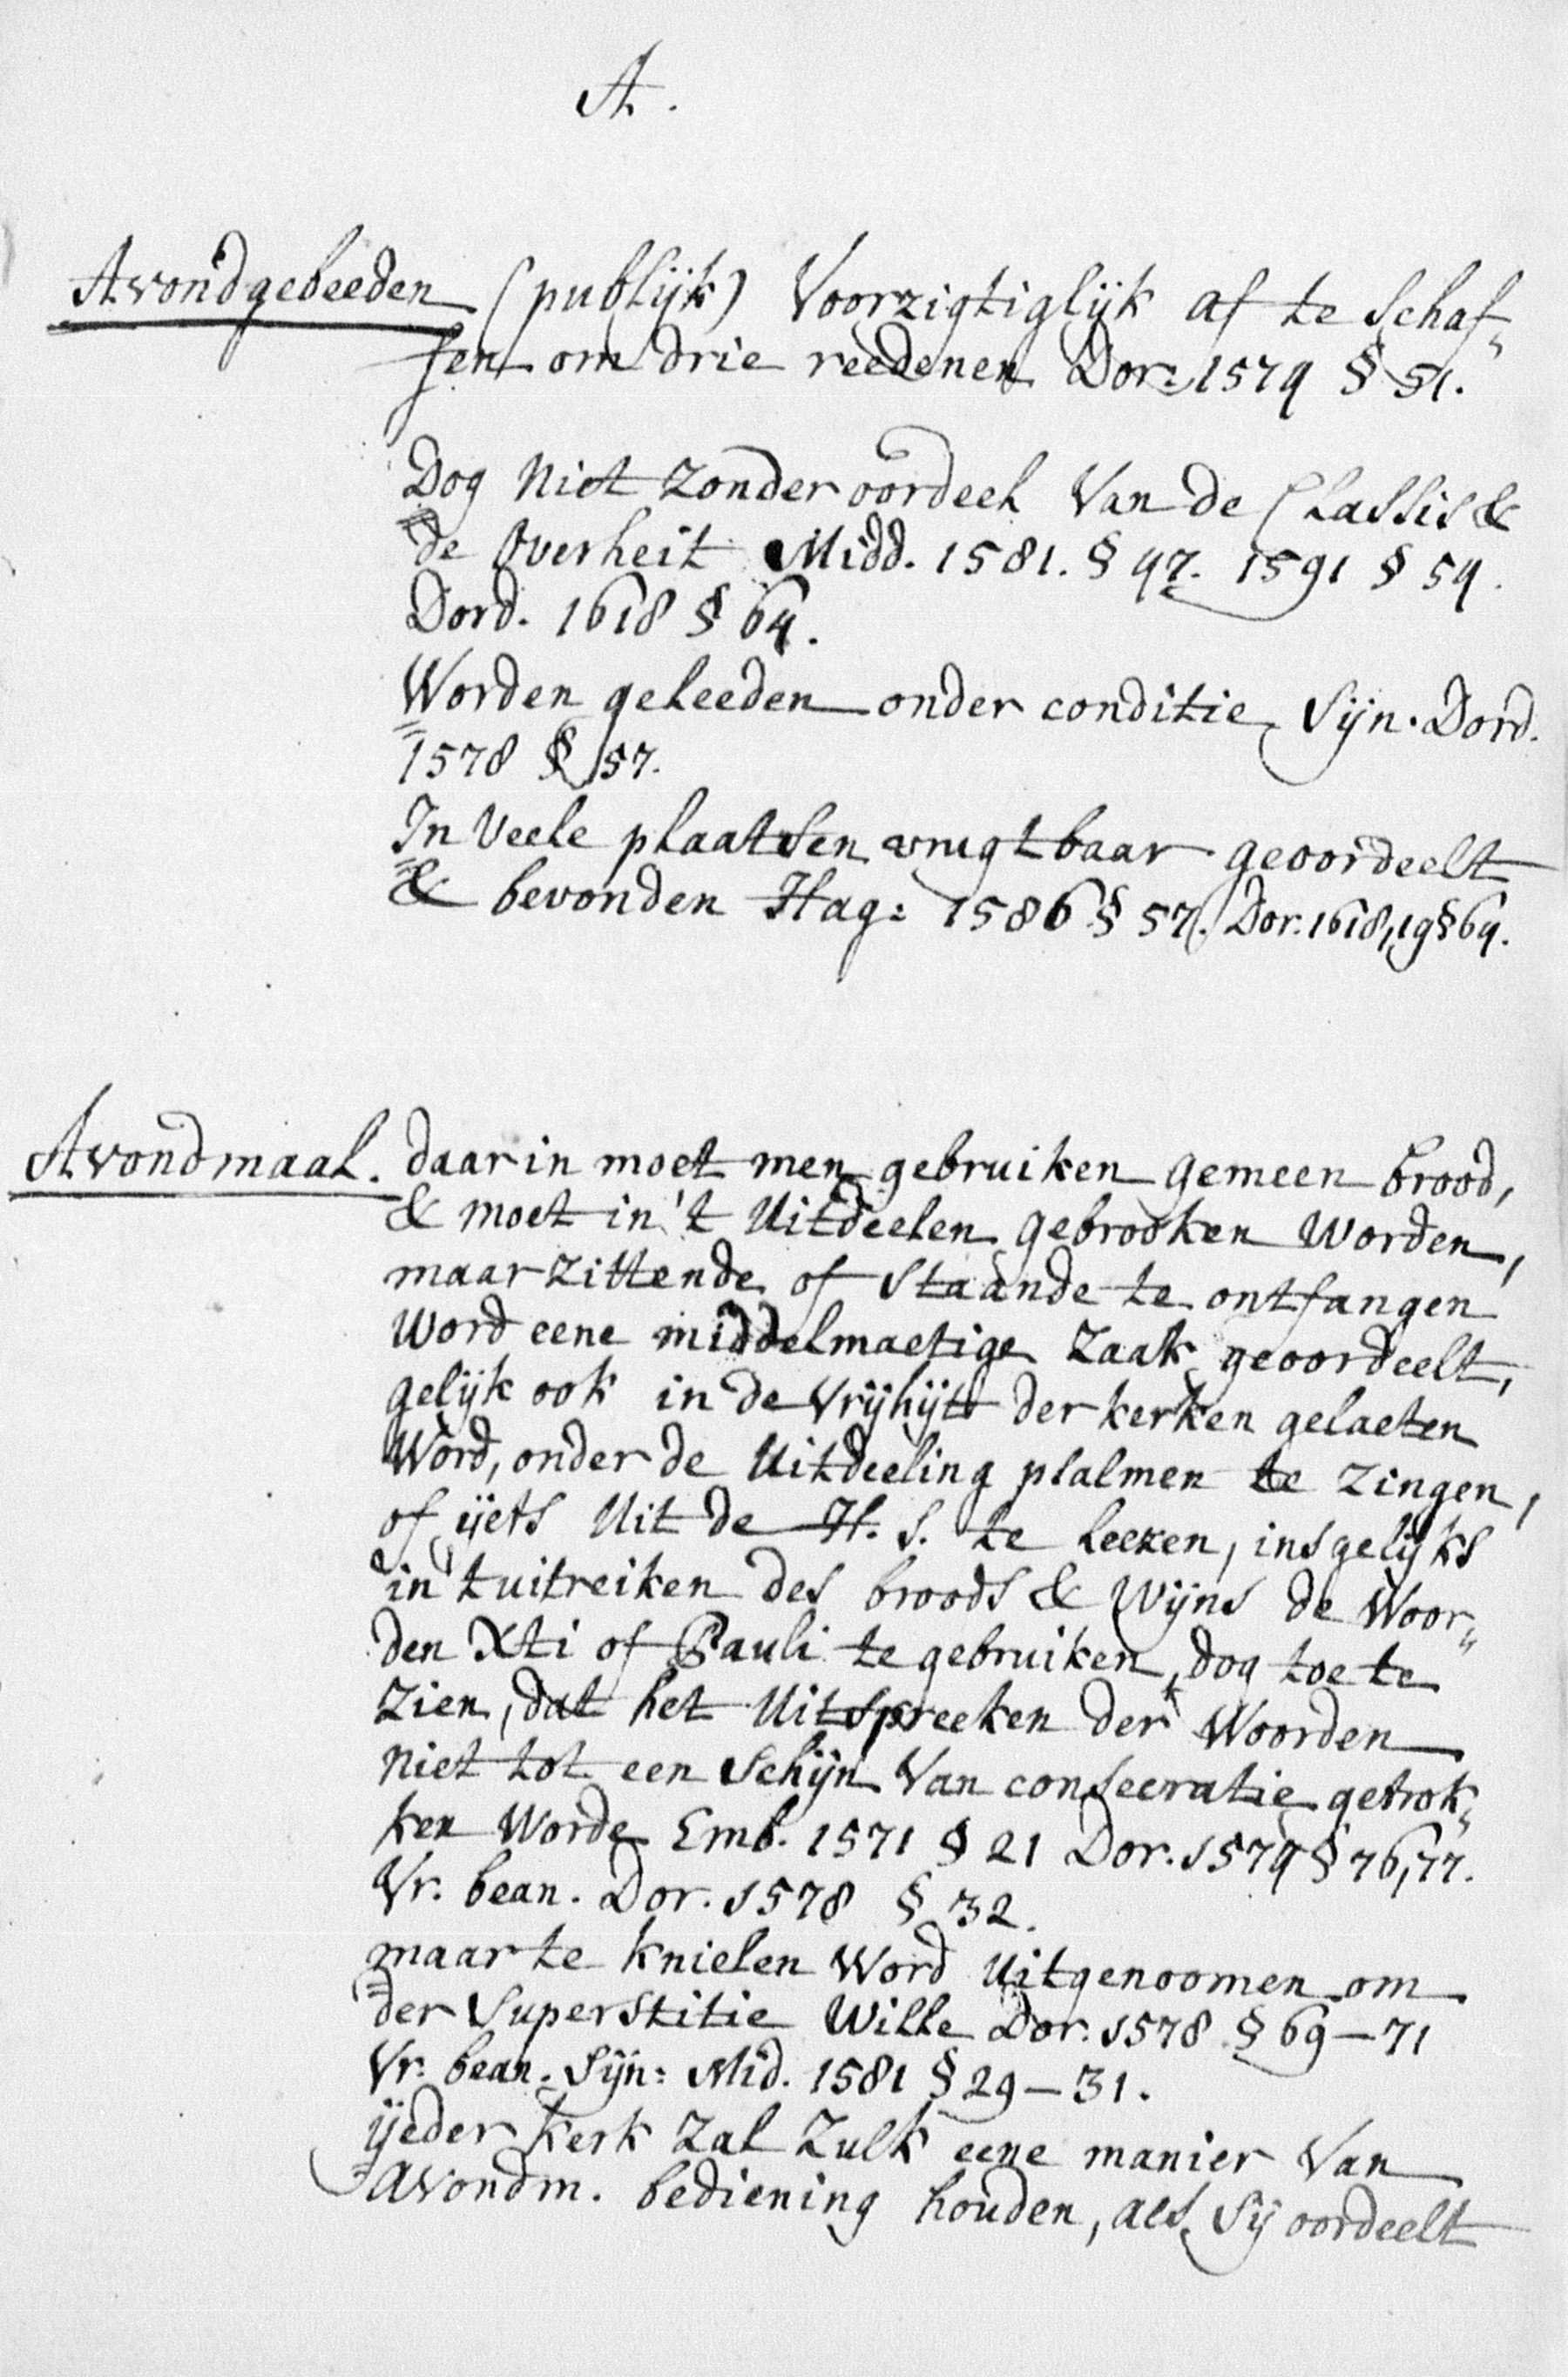 A.
Avondgebeeden (publijk) Voorzigtiglijk af te schaf„
fen om drie reedenen Dor: 1574 § 51.
Dog Niet Zonder oordeel Van de Classis &
de Overheit Midd. 1581. § 47. 1591 § 54.
Dord. 1618 § 64.
Worden geleeden onder conditie Sijn. Dord.
1578 § 57.
In Veele plaatsen vrugtbaar geoordeelt
& bevonden Hag: 1586 § 57. Dor. 1618,19 § 64.
Avondmaal. daarin moet men gebruiken gemeen brood,
& moet in 't Uitdeelen gebrooken Worden,
maar zittende of staande te ontfangen
Word eene middelmaetige Zaak geoordeelt,
gelijk ook in de Vrijhijt der kerken gelaeten
Word, onder de Uitdeeling psalmen te zingen,
of ijets Uit de H. S. te leezen, insgelijks
in tuitreiken des broods & Wijns de Woor„
den Xti of Pauli te gebruiken, dog toe te
zien, dat het Uitspreeken der Woorden
niet tot een schijn Van consecratie getrok„
ken Worde Emb. 1571 § 21 Dor. 1574 § 76,77.
Vr. bean. Dor. 1578 § 32.
maar te knielen Word Uitgenoomen om
der Superstitie Wille Dor. 1578 § 69–71
Vr. bean. Sijn: Mid. 1581 § 29–31.
ijeder kerk Zal Zulk eene manier Van
Avondm. bediening houden, als sij oordeelt